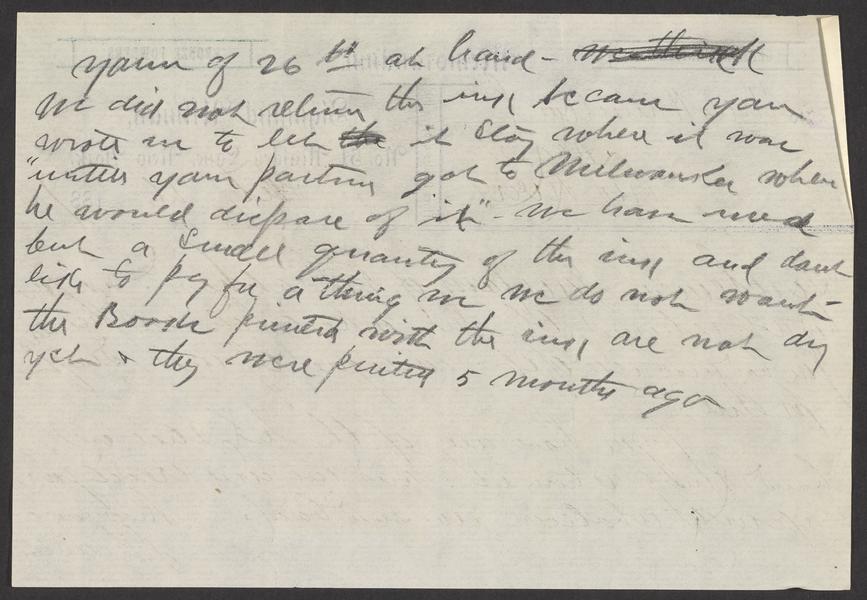 yours of 26th at hand -
We did not return the ink because you
wrote us to let the it stay where it was
"until your partner got to Milwaukee when
he would dispose of it" - We have used
but a small quantity of the ink and dont
like to pay for a thing we do not want -
the Books printed with the ink are not dry
yet & they were printed 5 months ago